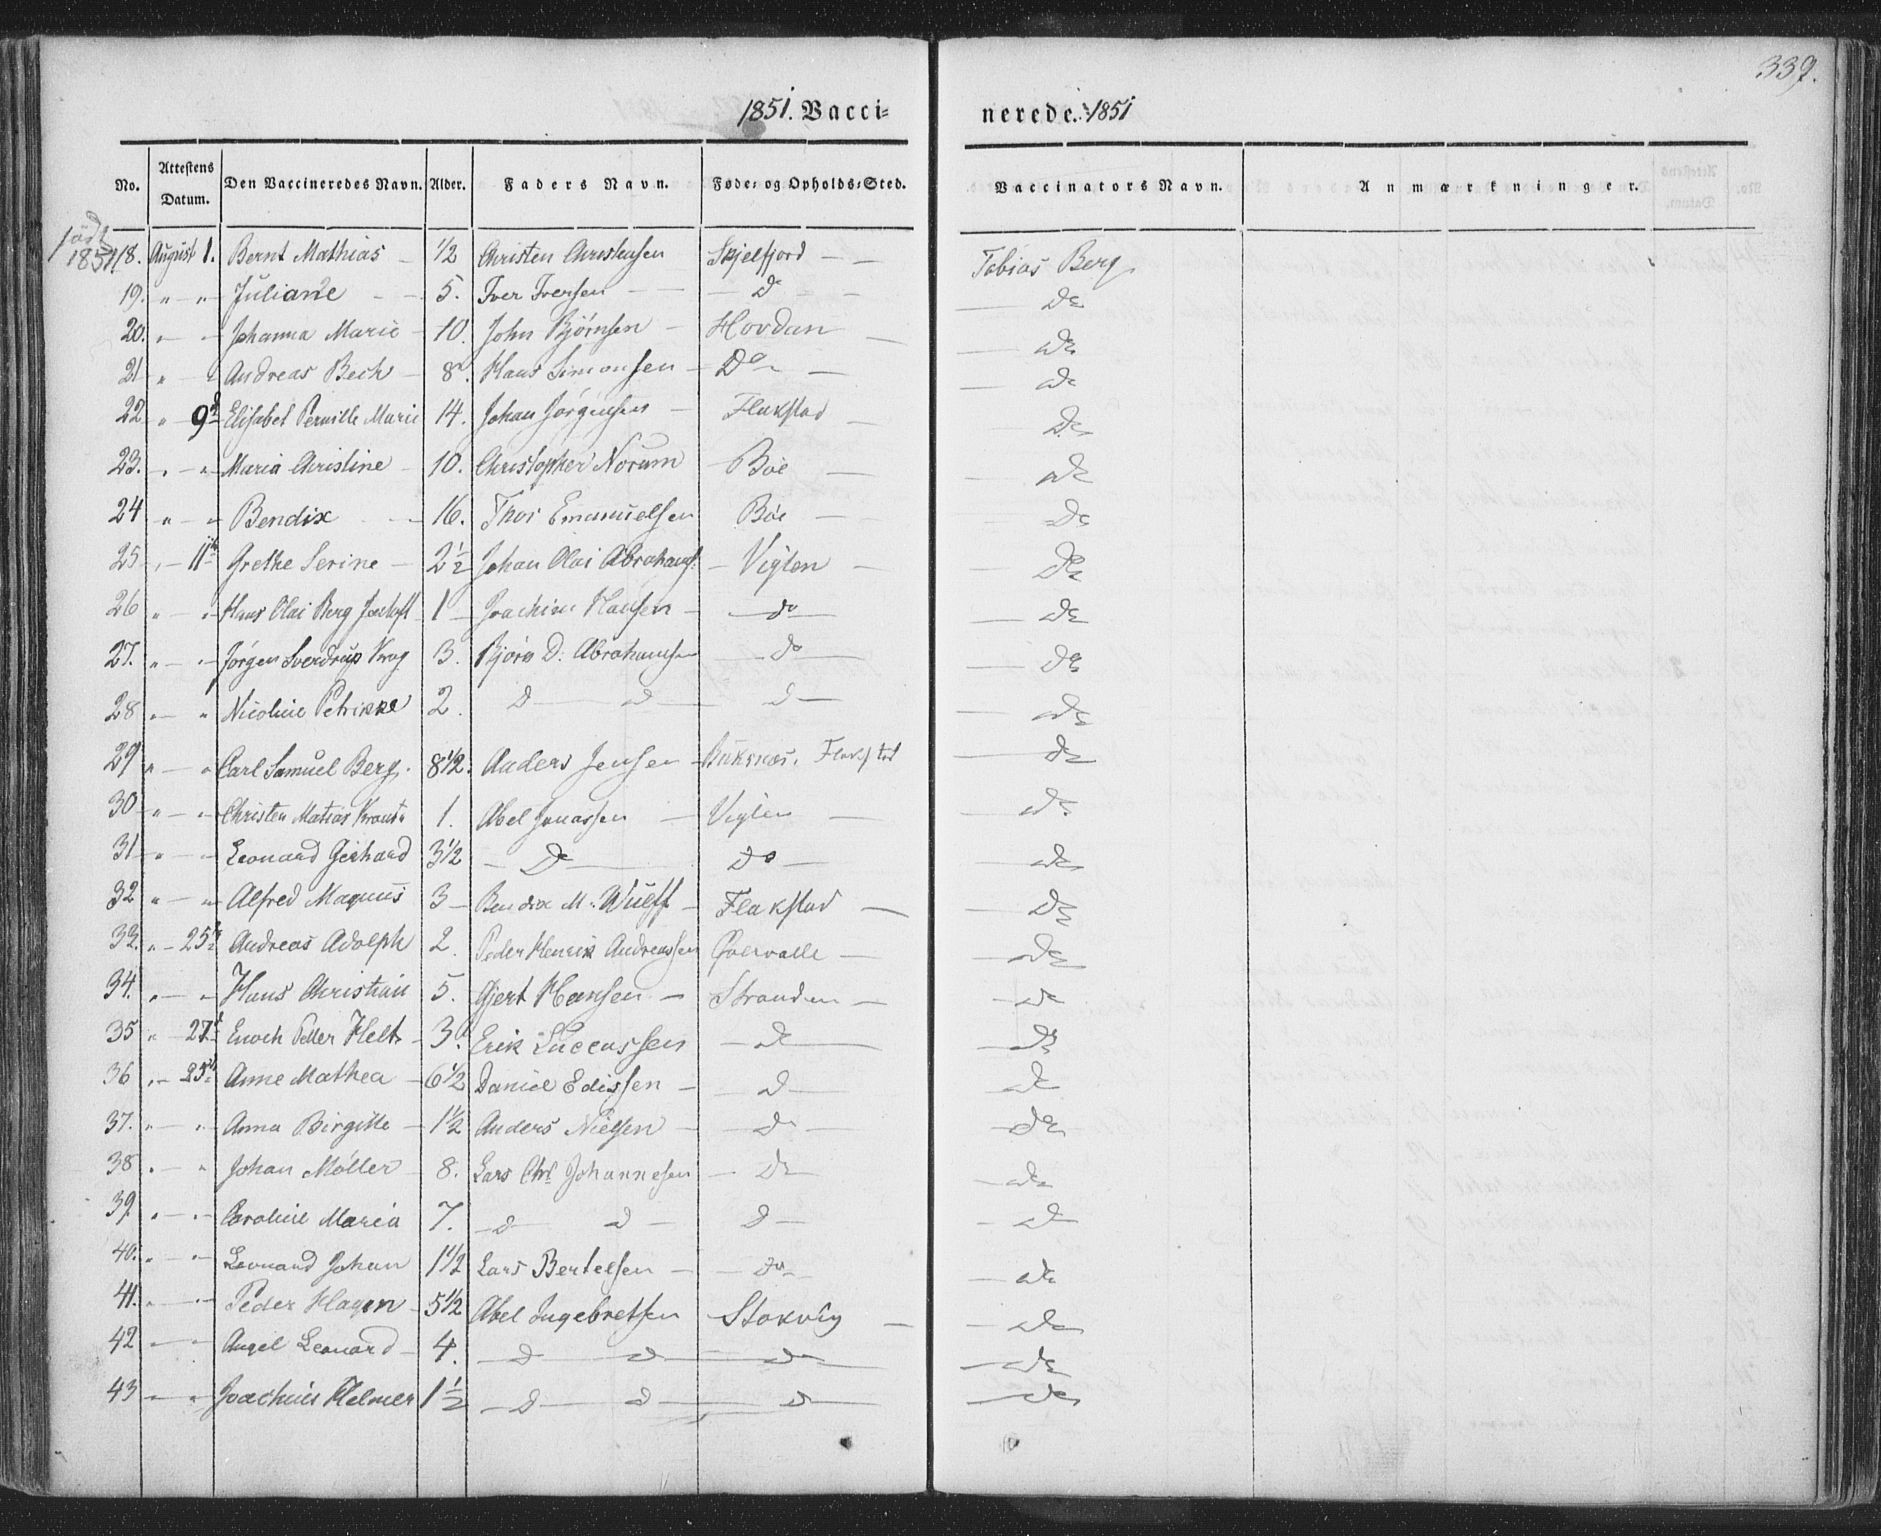 339.
1851. Vacci=
nerede. 1851
No. Attestens Datum. Den Vaccineredes Navn. Alder. Faders Navn. Føde= og Opholds=Sted. Vaccinators Navn. Anmærkninger.
1851
18. August 1. Bernt Mathias - 1/2 Christen Christensen Skjelfjord - - Tobias Berg
19. " - " - Juliane - - 5. Iver Iversen - - - D - - - Do
20. " - - Johanna Marie - 10. John Bjørnsen - Hovdan - - do
21 " - " Andreas Bech - 8. Hans Simonsen - Do - - do
22 " - 9d Elisabet Pernille Marie 14. Johan Jørgensen - Flakstad - - Do
23. " - " - Maria Christine - 10. Christopher Norum - Boe - - do
24 " - " - Bendix - - 16. Thor Emanuelsen Böe - - Do
25 " - 11te Grethe Serine - 2 1/2 Johan Olai Abrahams: - Vigten - - Do
26 " - " - Hans Olai Berg 1 - Joachim Hansen - - do - - do
27. " - " - Jørgen Sverdrup Krog 3. Bjørn D. Abrahamsen - do - - do
28 " - " Nicoline Petrikke 2. D - d - d - - do
29 " - " Carl Samuel Berg. 8 1/2. Anders Jensen - Buksnæs. Flakstad - do
30 " - " - Christen Matias 1. Abel Jonassen - Vigten - - do
31 " - " - Leonard Gerhard 3 1/2 - Do - Do - - do
32 " - " - Alfred Magnus 3 - Bendix M. Wulff - Flakstad - - Do
33. " - 25te Andreas Adolph 2. Peder Henrik Andreassen - - do
34. " - " - Hans Christian 5. Gjert Hansen - Stranden - - do
35 " - 27 Enoch Petter Helt - 3. Erik Luccassen - d - - do
36 " - 25te Anne Mathea - 6 1/2 Daniel Edissen - - D - - do
37. " - " - Anna Birgitte - 1 1/2 Anders Nielsen - - D - - do
38 " - " Johan Møller - 8. Lars Chr. Johannesen - D - - do
39. " - " - Caroline Maria 7. - D - d - D - - do
40. " - " - Leonard Johan 1 1/2 Lars Bertelsen - - do - - do
41. " - " - Peder Hagen - 5 1/2 Abel Ingebretsen Stokvig - - do
42 - - " - Angel Leonard - 4. - D - d - do - - do
43 - " - " Joachim Helmer 1 1/2 - D - d - d - - do